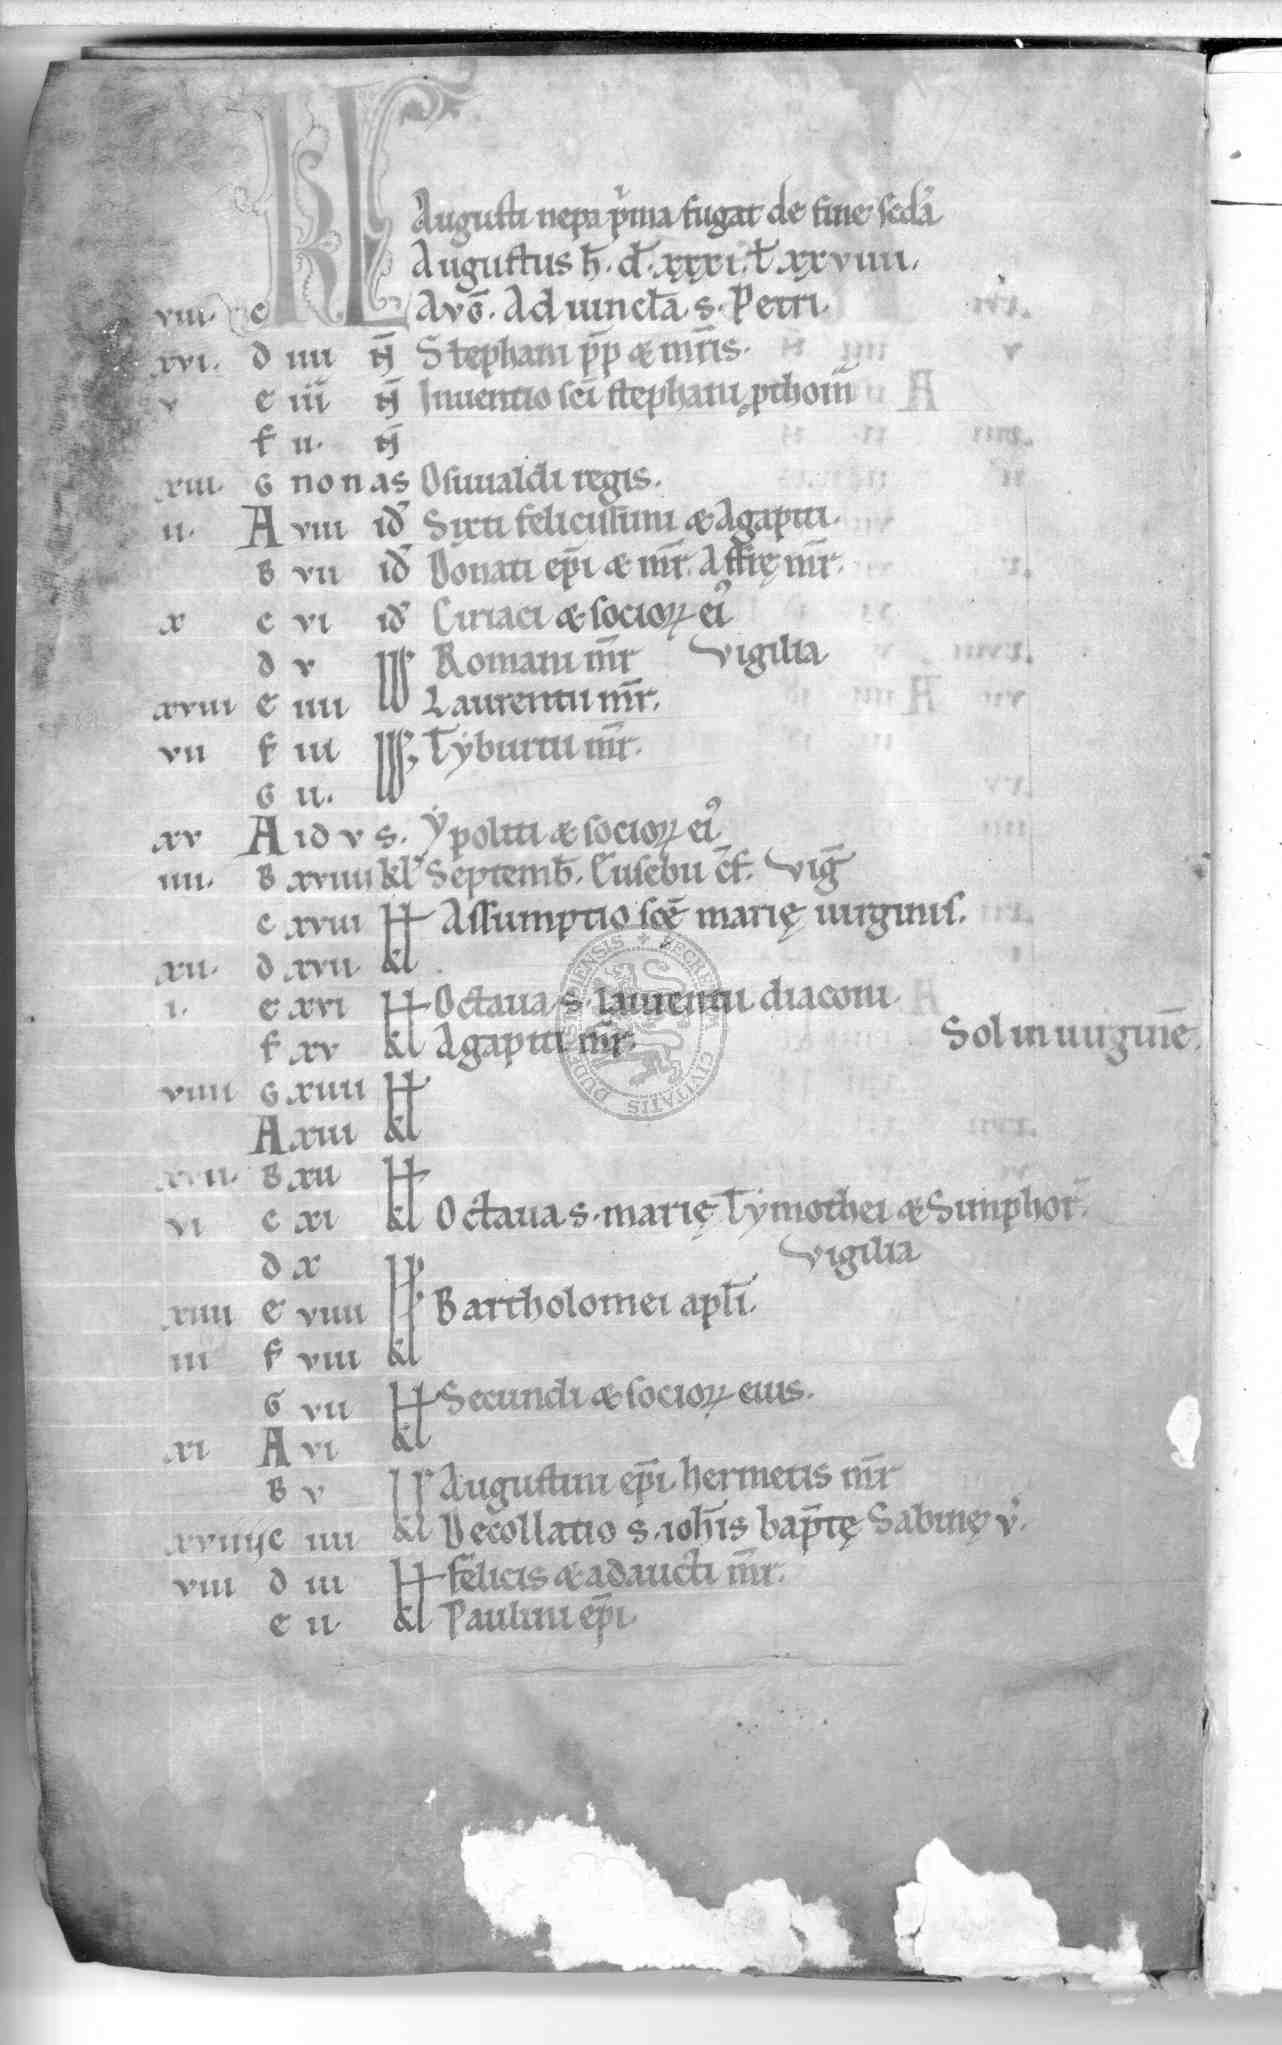 KL Augusti nepa p͛ma fugat de fine scd͛a
Augustus h̄. d̄. xxxi. l̄. xxviiii.
viii. c Avḡ. Ad uincl̄a s. Petri
xvi. d iiii N̄ Stephani p̄p & mr̄is.
v e iii N̄ Inuentio sc̄i stephani ꝓthom̄
f ii. N̄
xiii. G nonas Osuualdi regis.
ii. A viii id̄ Sixti felicissimi & Agapiti.
B vii id̄ Donati ep̄i & mr̄. Affrę mr̄.
x c vi id̄ Ciriaci & socioꝝ ei᾽
d v Romani mr̄ vigilia
xviii e iiii Laurentii mr̄.
vii f iii Tyburtii mr̄.
G ii.
xv A idvs. Ypoliti & socioꝝ ei᾽
iiii. B xviiii kl̄ Septemb̄. Eusebii c̄f. viḡ
c xviii Assumptio sc̄e marię uirginis.
xii. d xvii kl
i. e xvi Octaua s. laurentii diaconi
f xv kl Agapiti mr̄. Sol in uirginē.
viiii G xiiii
A xiii kl
xvii. B xii
vi c xi kl Octaua s. marię Tymothei & Simphor̄.
d x vigilia
xiiii e viiii Bartholomei apl̄i.
iii f viii kl
G vii Secundi & socioꝝ eius.
xi A vi kl
B v Augustini ep̄i. hermetis mr̄
xviiii c iiii kl Decollatio s. ioh̄is bap̄tę Sabinę v̄.
viii d iii felicis & adaucti mr̄.
e ii kl Paulini ep̄i.